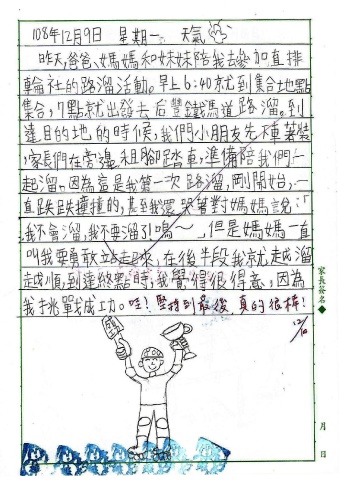 108年12月9日 星期一 天氣
昨天,爸爸、媽媽和妹妹陪我去參加直排
輪社的路溜活動。早上6:40就到集合地點
集合,7點就出發去后豐鐵馬道路溜。到
達目的地的時候,我們小朋友先著裝
,家長們在旁邊租腳踏車,準備陪我們一
起溜。因為這是我第一次路溜,剛開始,一
直跌跌撞撞的,甚至我還哭著對媽媽說:「
我不會溜,我不要溜了!嗚~,但是媽媽一直
叫我要勇敢立站起來,在後半段我就越溜
越順,到達終點時,我覺得很得意,因為
我挑戰成功。哇!堅持到最後,真的很棒!
12/10
家長簽名
月 日